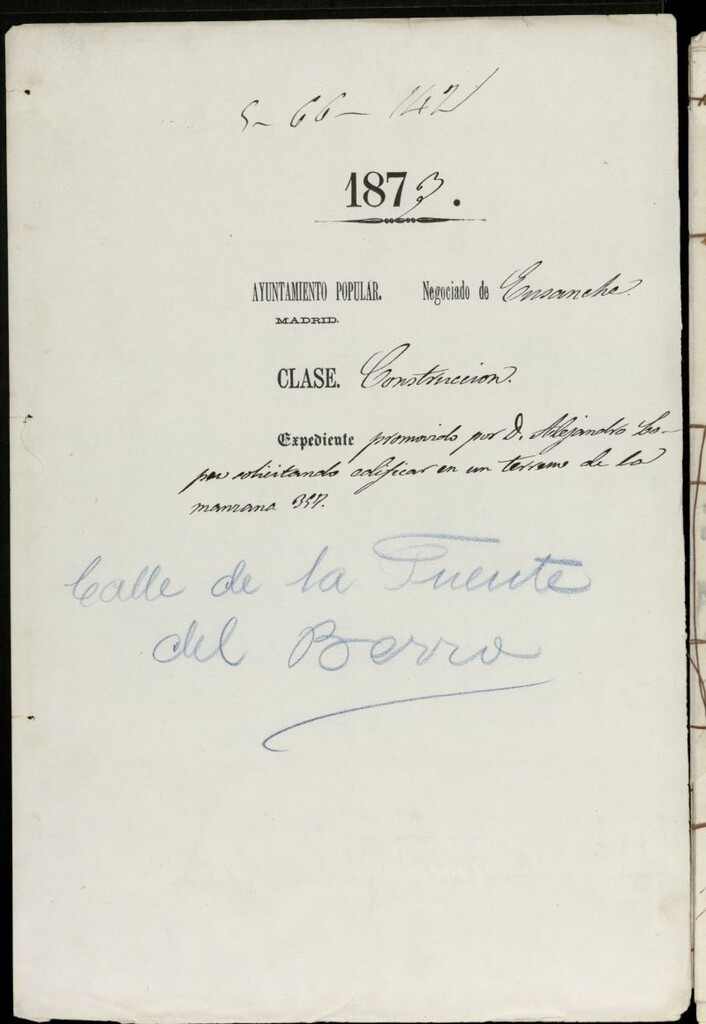 5-66-142
1873.
AYUNTAMIENTO POPULAR. Negociado de Ensanche.
MADRID.
CLASE. Construccion.
Expediente promovido por D. Alejandro Lo-
pez solicitando edificar en un terreno de la
manzana 357.
Calle de la Fuente
del Berro